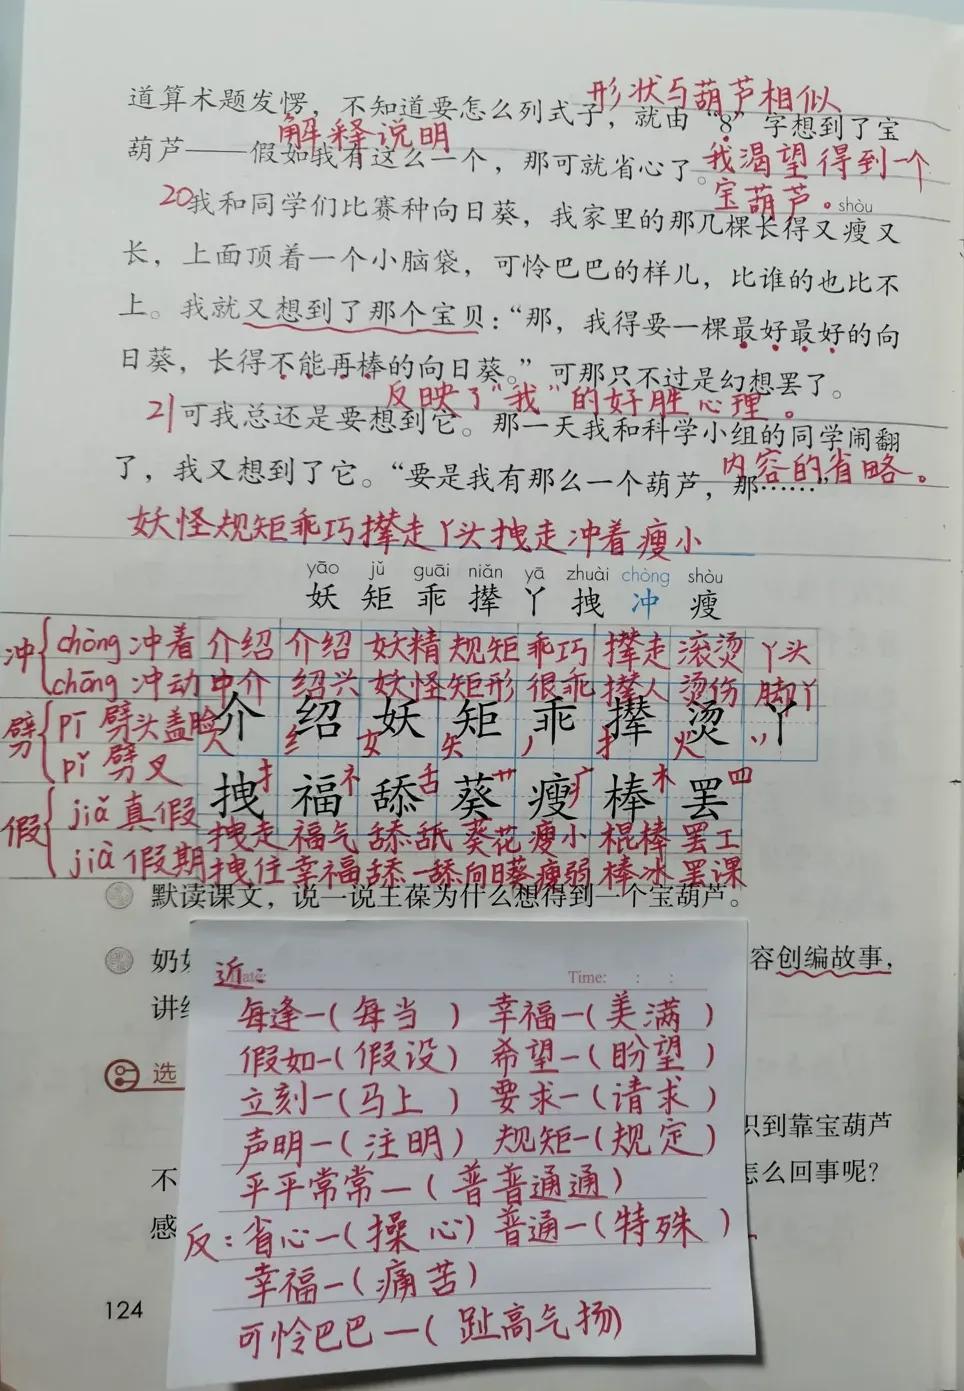 形状与葫芦相似
道算术题发愣，不知道要怎么列式子，就由“8”字想到了宝
解释说明
葫芦——假如我有这么一个，那可就省心了。我渴望得到一个
宝葫芦。
shòu
20我和同学们比赛种向日葵，我家里的那几棵长得又瘦又
长，上面顶着一个小脑袋，可怜巴巴的样儿，比谁的也比不
上。我就又想到了那个宝贝：“那，我得要一棵最好最好的向
日葵，长得不能再棒的向日葵。”可那只不过是幻想罢了。
反映了“我”的好胜心理。
21可我总还是要想到它。那一天我和科学小组的同学闹翻
了，我又想到了它。“要是我有那么一个葫芦，那……”
内容的省略。
妖怪规矩乖巧撵走丫头拽走冲着瘦小
yāo jǔ guāi niǎn yā zhuài chòng shòu
妖 矩 乖 撵 丫 拽 冲 瘦
冲 chòng 冲着 介绍 介绍 妖精 规矩 乖巧 撵走 滚烫 丫头
chōng 冲动 中介 绍兴 妖怪 矩形 很乖 撵人 烫伤 脚丫
劈 pī 劈头盖脸 介 绍 妖 矩 乖 撵 烫 丫
人 纟 女 矢 丿 扌 火 丷
pǐ 劈叉
拽 扌 福 礻 舔 舌 葵 艹 瘦 疒 棒 木 罢 罒
假 jiǎ 真假 拽走 福气 舔舐 葵花 瘦小 棍棒 罢工
jià 假期 拽住 幸福 舔一舔 向日葵 瘦弱 棒冰 罢课
默读课文，说一说王葆为什么想得到一个宝葫芦。
奶
容创编故事，
讲
选
只到靠宝葫芦
不
怎么回事呢？
感
近：
Time: : :
每逢—（每当） 幸福—（美满）
假如—（假设） 希望—（盼望）
立刻—（马上） 要求—（请求）
声明—（注明） 规矩—（规定）
平平常常—（普普通通）
反：省心—（操心） 普通—（特殊）
幸福—（痛苦）
可怜巴巴—（趾高气扬）
124